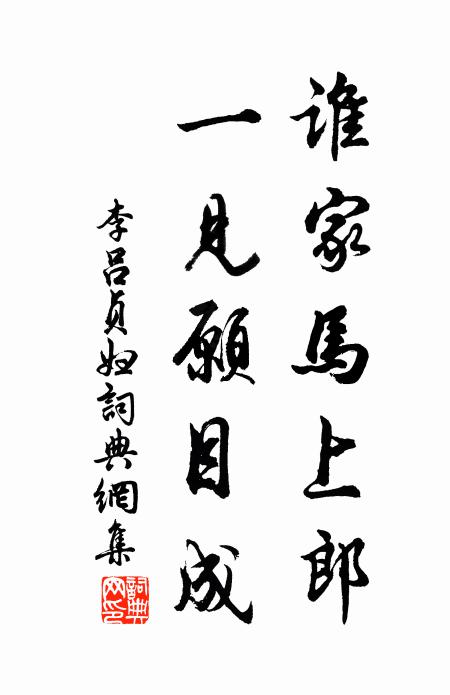 誰家馬上郎
一見願目成
李呂貞妇詞典網集
詞典網印